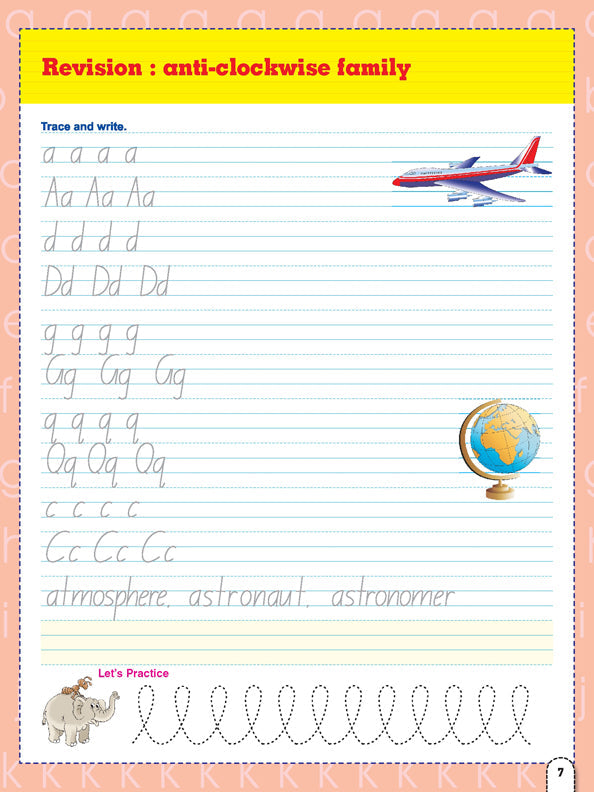 Revision : anti-clockwise family
Trace and write.
a a a a
Aa Aa Aa
d d d d
Dd Dd Dd
g g g g
Gg Gg Gg
q q q q
Qq Qq Qq
c c c c
Cc Cc Cc
atmosphere, astronaut, astronomer
Let's Practice
7